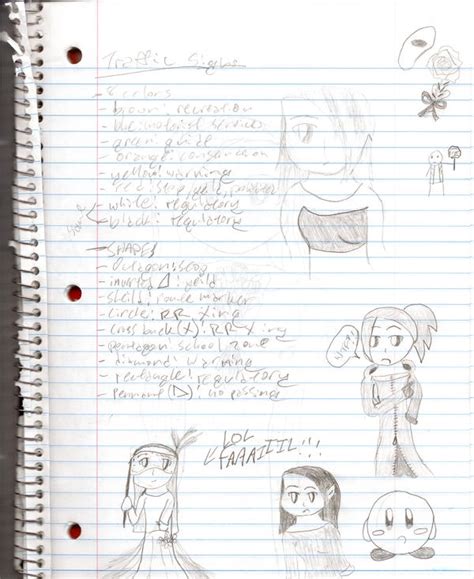 Traffic Signs
- 8 colors
- brown: recreation
- blue: motorist services
- green: guide
- orange: construction
- yellow: warning
- red: stop, yield,
- white: regulatory
- black: regulatory
- SHAPES
- Octagon: stop
- inverted ▷: yeild
- sheild: route marker
- circle: RR Xing
- cross buck (X): RR Xing
- pentagon: school zone
- diamond: warning
- rectangle: regulatory
- pennant (▷): no passing
LOL
FAAAIIIL!!!